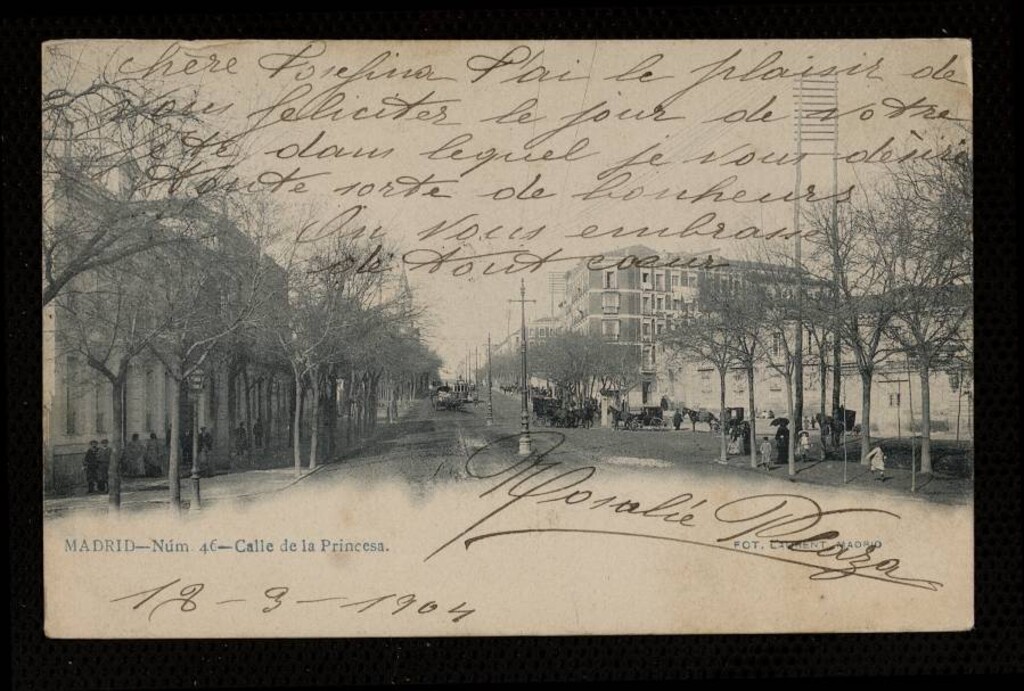 Chère Josefina J'ai le plaisir de
vous feliciter le jour de votre
fête, dans lequel je vous désire
toute sorte de bonheurs
On vous embrasse
de tout coeur
Rosalie Plaza
MADRID—Núm. 46—Calle de la Princesa.
FOT. LAURENT. MADRID
18-3-1904